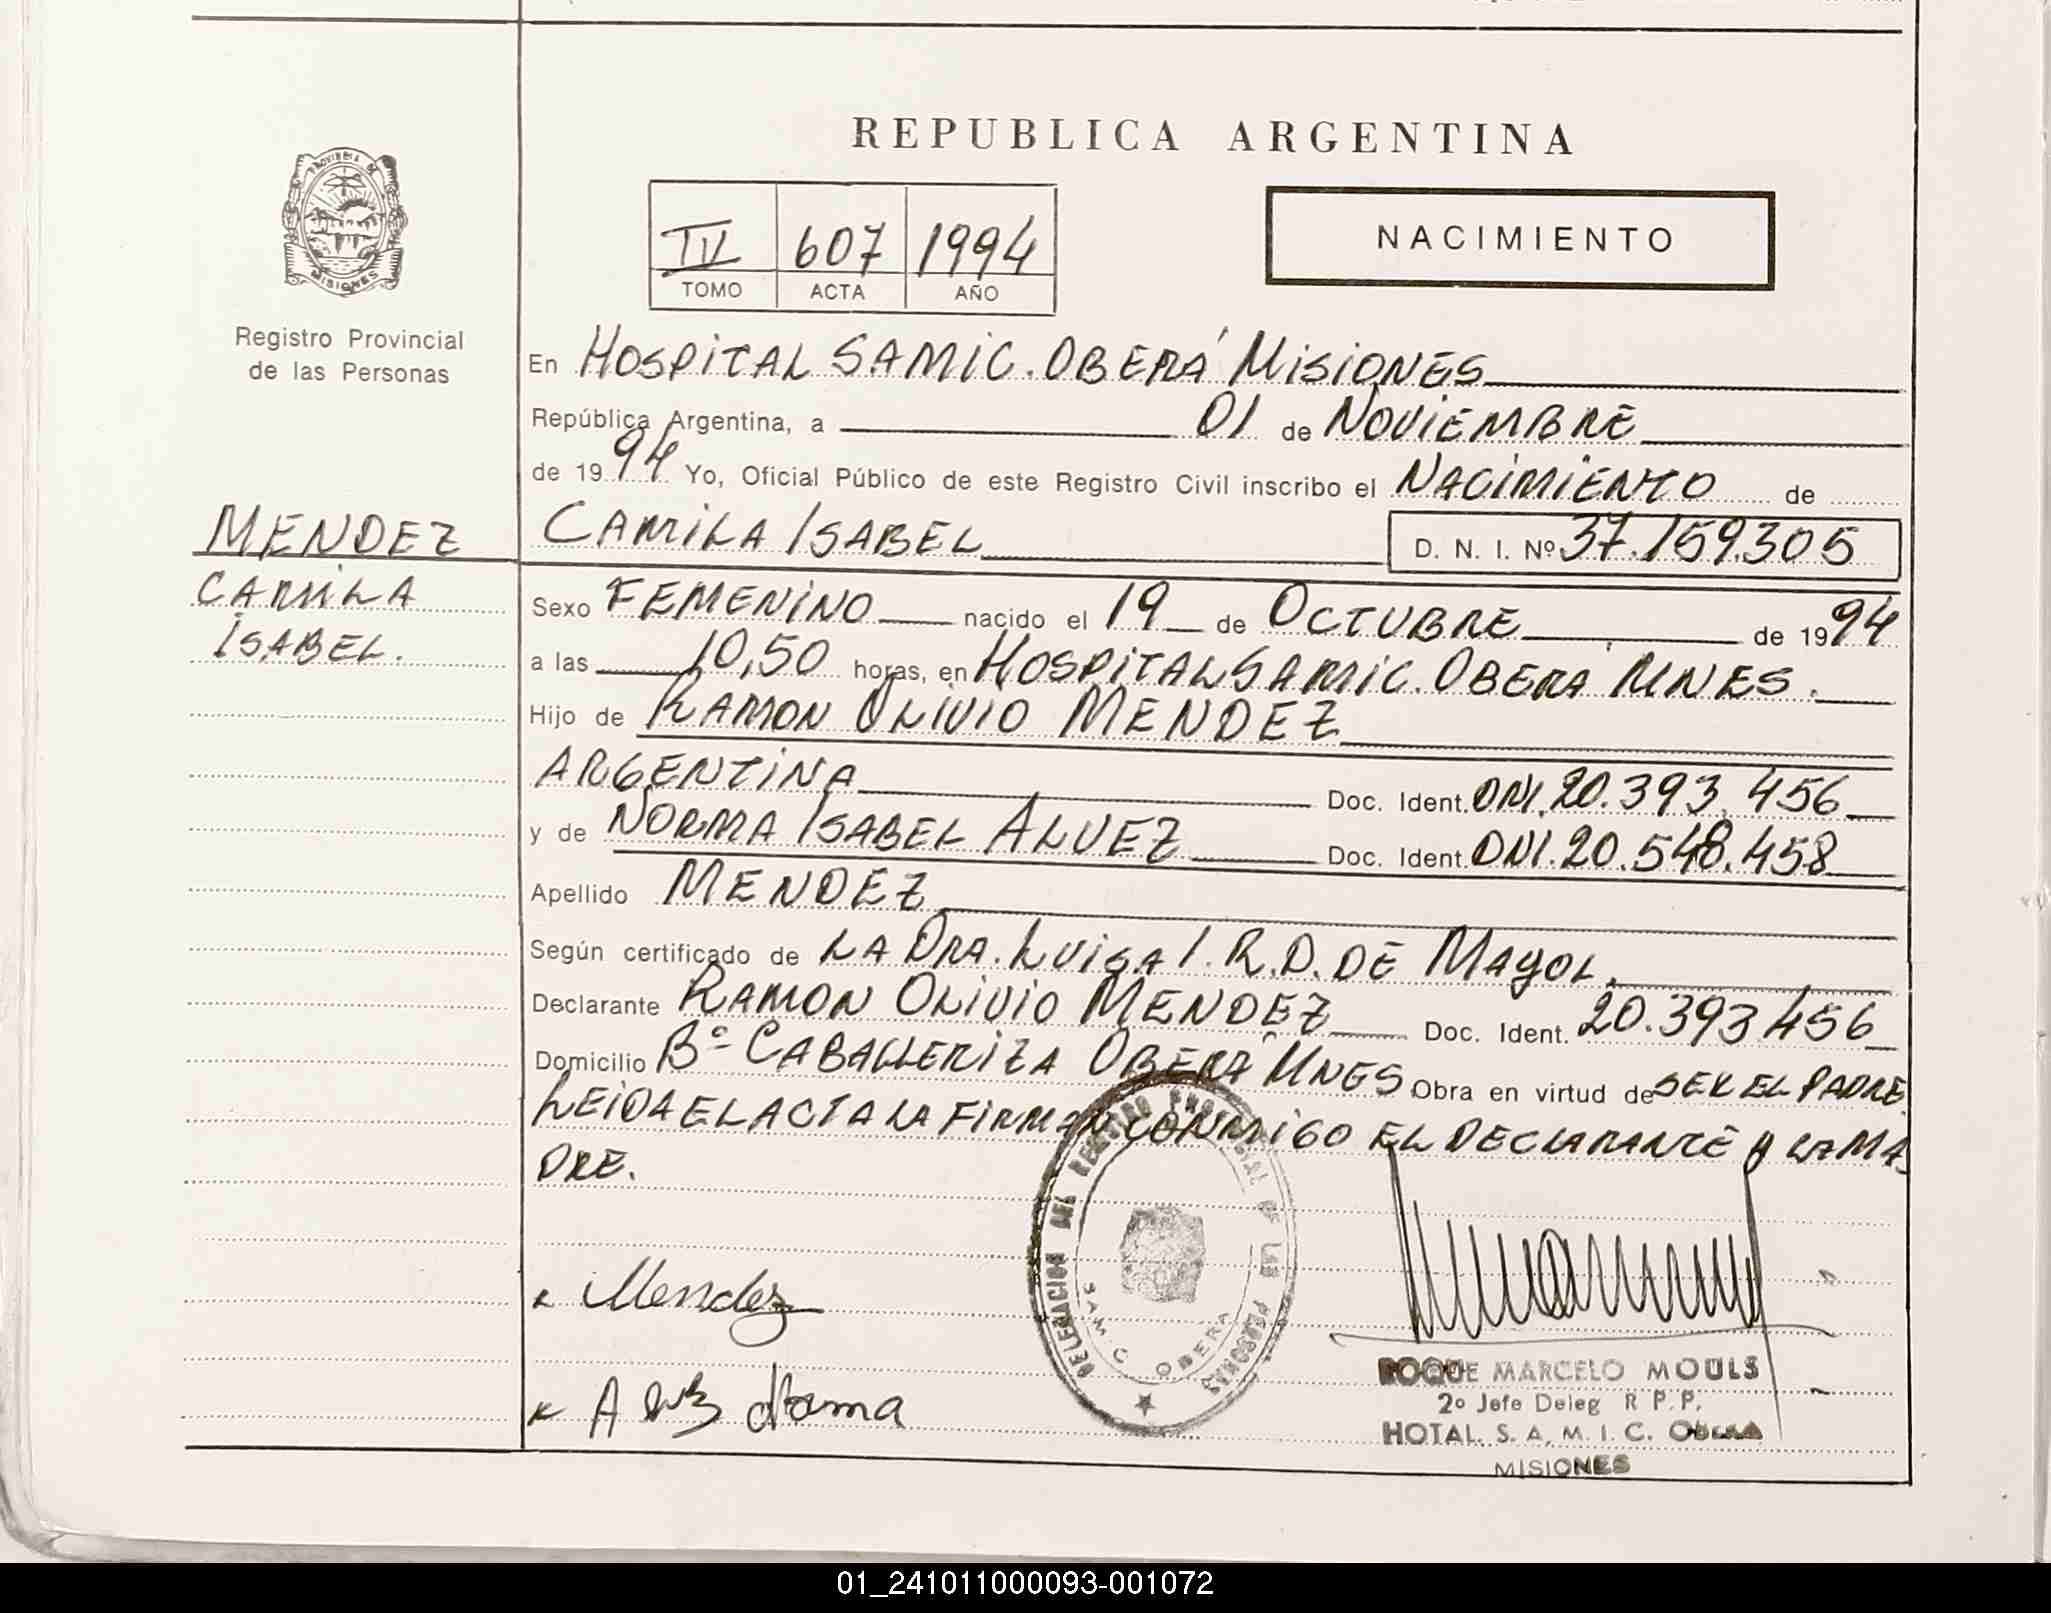 REPUBLICA ARGENTINA
PROVINCIA DE
MISIONES
Registro Provincial
de las Personas
IV 607 1994
TOMO ACTA AÑO
NACIMIENTO
En HOSPITAL SAMIC. OBERÁ MISIONES
República Argentina, a 01 de NOVIEMBRE
de 1994 Yo, Oficial Público de este Registro Civil inscribo el NACIMIENTO de
MENDEZ
CAMILA
ISABEL.
CAMILA ISABEL D. N. I. Nº 37.159.305
Sexo FEMENINO nacido el 19 de OCTUBRE de 1994
a las 10,50 horas, en HOSPITAL SAMIC. OBERÁ MNES.
Hijo de RAMON OLIVIO MENDEZ
ARGENTINA Doc. Ident. DNI. 20.393.456
y de NORMA ISABEL ALVEZ Doc. Ident. DNI. 20.548.458
Apellido MENDEZ
Según certificado de LA DRA. LUISA I. R. D. DE MAYOL.
Declarante RAMON OLIVIO MENDEZ Doc. Ident. 20.393.456
Domicilio Bº CABALLERIZA OBERÁ MNES Obra en virtud de SER EL PADRE.
LEIDA EL ACTA LA FIRMAN CONMIGO EL DECLARANTE Y LA MA
DRE.
DELEGACION DEL REGISTRO PROVINCIAL DE LAS PERSONAS
SAMIC OBERA
Mendez
ROQUE MARCELO MOULS
2º Jefe Deleg R. P. P.
HOTAL. S. A. M. I. C. OBERA
MISIONES
01_241011000093-001072